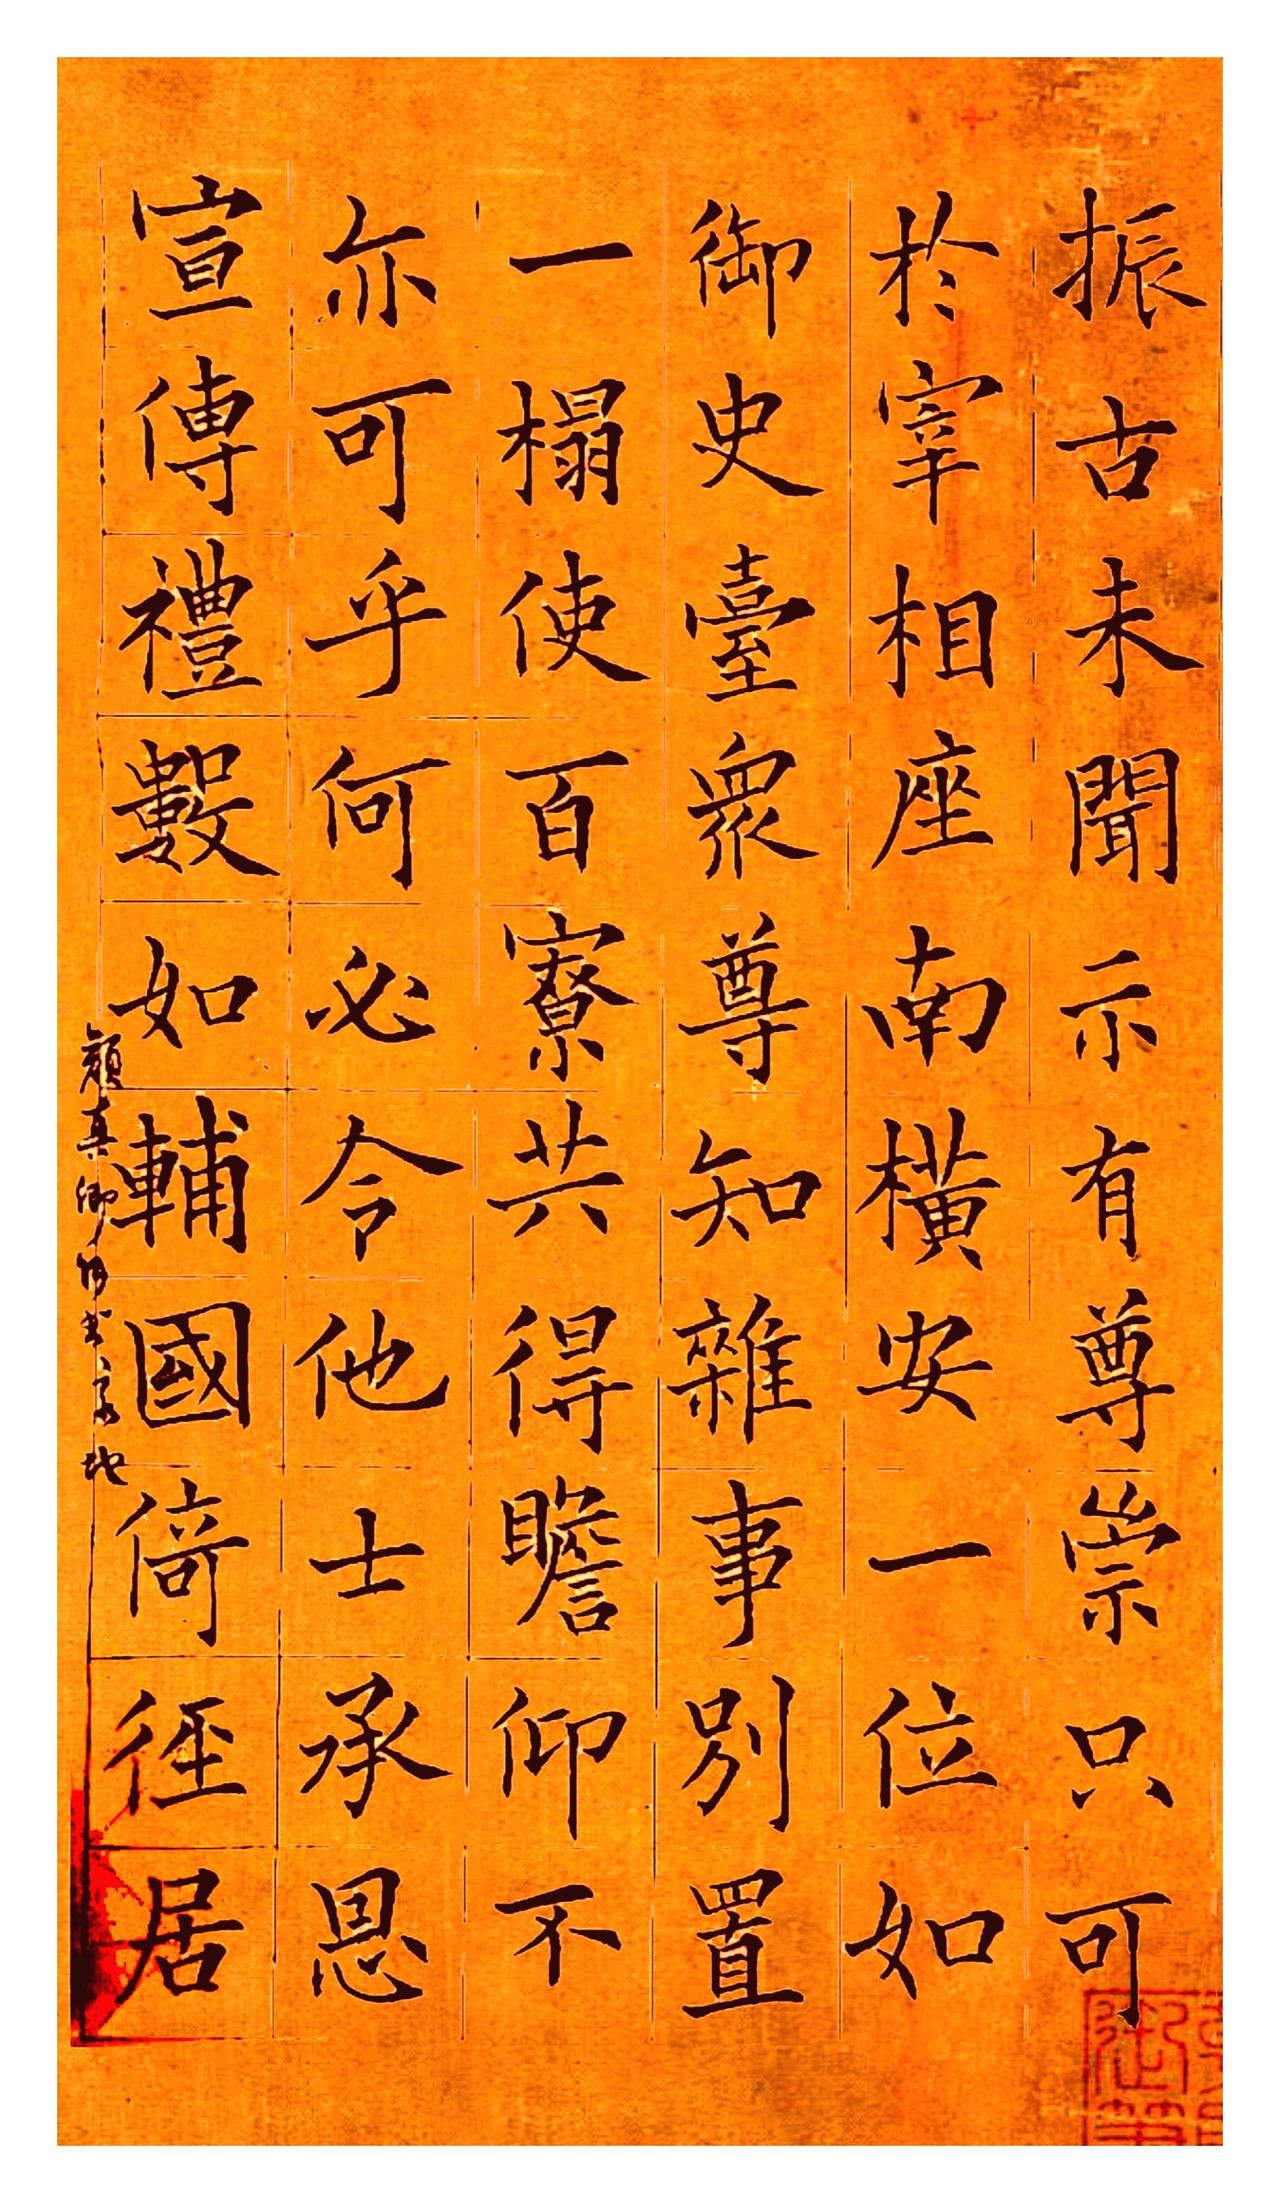 振古未聞示有尊崇只可
於宰相座南橫安一位如
御史臺眾尊知雜事別置
一榻使百寮共得瞻仰不
亦可乎何必令他士承恩
宣傳禮數如輔國倚徑居
顏真卿